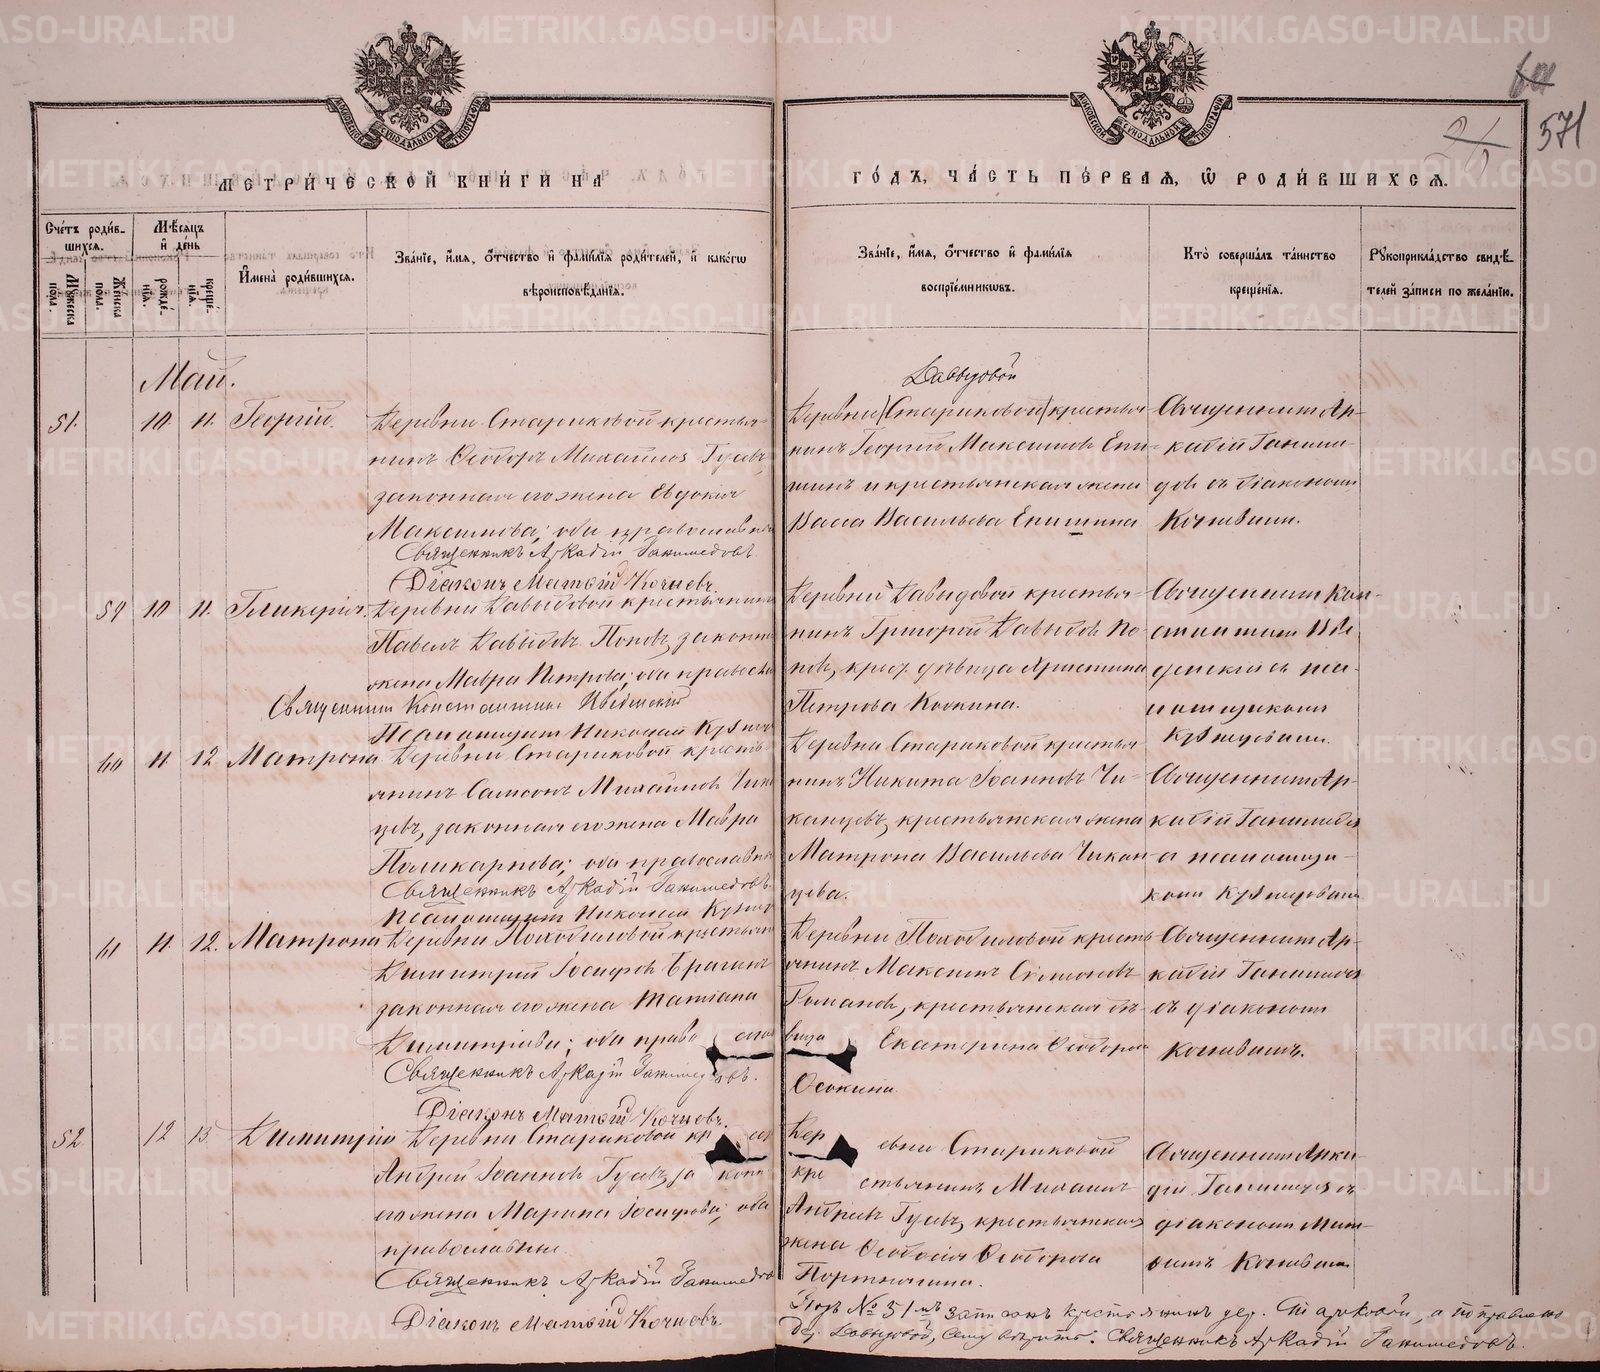 METRIKI.GASO-URAL.RU
571
МЕТРИ́ЧЕСКОЙ КНИ́ГИ НА
ГО́ДЪ, ЧА́СТЬ ПЕ́РВАЯ, Ѡ РОДИ́ВШИХСЯ.
Сче́тъ роди́вшихся.
Мужеска пола.
Женска пола.
Мѣ́сяцъ и́ де́нь
рожде́нія.
креще́нія.
Имена̀ роди́вшихся.
Зва́ніе, и́мя, о́тчество и́ фами́лія роди́телей, и́ како́гѡ
вѣроисповѣ́данія.
Зва́ніе, и́мя, о́тчество и́ фами́лія
воспріе́мниковъ.
Кто̀ соверша́лъ та́инство
креще́нія.
Рукоприкла́дство свидѣ́-
телей за́писи по жела́нію.
Май.
51.
10.
11.
Георгій.
Деревни Стариковой крестья-
нинъ Ѳеодоръ Михайловъ Гусевъ,
законная его жена Евдокія
Максимова; оба православн
Священникъ Аркадій Ганимедовъ.
Діаконъ Матѳій Кочневъ.
Давыдовой
Деревни (Стариковой) крестья-
нинъ Георгій Максимовъ Епи-
шинъ и крестьянская жена
Васса Васильева Епишина
Священникъ Ар-
кадій Ганиме-
довъ съ діакономъ
Кочневымъ.
59
10
11.
Гликерія.
Деревни Давыдовой крестьянинъ
Павелъ Давыдовъ Поповъ, законн
жена Мавра Петрова; оба правосла
Священникъ Константинъ Введенскій
Псаломщикъ Николай Кузнец
Деревни Давыдовой крестья-
нинъ Григорій Давыдовъ По-
повъ, крест. дѣвица Христина
Петрова Коокина.
Священникъ Кон-
стантинъ Вве-
денскій съ пса-
ломщикомъ
Кузнецовымъ.
60
11
12
Матрона
Деревни Стариковой кресть-
янинъ Самсонъ Михайловъ Чикан
цевъ, законная его жена Мавра
Поликарпова; оба православн
Священникъ Аркадій Ганимедовъ.
Псаломщикъ Николай Кузнец
Деревни Стариковой крестья-
нинъ Никита Іоанновъ Чи-
канцевъ, крестьянская жена
Матрона Васильева Чикан-
цева.
Священникъ Ар-
кадій Ганимедов
съ псаломщи-
комъ Кузнецовымъ
61
11.
12.
Матрона
Деревни Походиловой крестьян
Димитрій Іосифовъ Брагинъ
законная его жена Татіана
Димитріева; оба право слав
Священникъ Аркадій Ганимедовъ.
Діаконъ Матѳій Кочневъ.
Деревни Походиловой кресть
янинъ Максимъ Симеоновъ
Романовъ, крестьянская дѣ-
вица Екатерина Ѳеодорова
Осокина.
Священникъ Ар-
кадій Ганимедов
съ діакономъ
Кочневымъ.
52
12
13.
Димитрій
Деревни Стариковой кр
Андрей Іоанновъ Гусевъ, за конн
его жена Марина Іосифова; оба
православные.
Священникъ Аркадій Ганимедовъ
Діаконъ Матѳій Кочневъ.
Дер евни Стариковой
кре стьянинъ Михаилъ
Андреевъ Гусевъ, крестьянская
жена Ѳеодосія Ѳеодорова
Портнягина.
Священникъ Арка-
дій Ганимедовъ съ
діакономъ Мат-
ѳіемъ Кочневымъ
Подъ № 51-мъ записанъ крестьянинъ дер. Стариковой, а поправлено
дер. Давыдовой, сему вѣрить. Священникъ Аркадій Ганимедовъ.